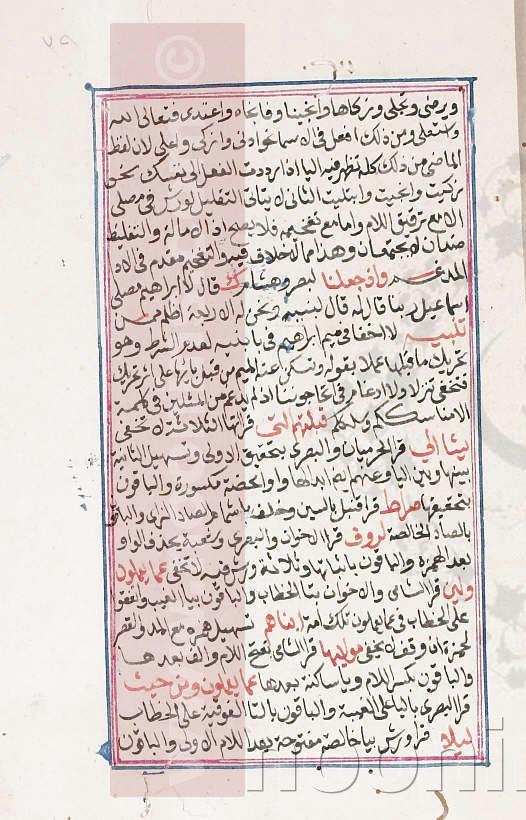 ويرضى وتجلى وزكاها وأنجينا وفأنجاه واعتدى فتعالى الله
واستعلى ومن ذلك افعل في الاسما نحو ادنى وازكى واعلى لان لفظ
الماضي من ذلك كله تظهر فيه اليا اذا رددت الفعل الى نفسك نحو
زكيت وانجيت وابتليت الثاني لا يتاتى التقليل لورش في مصلى
الا مع ترقيق اللام واما مع تفخيمه فلا يصح اذ الامالة والتغليظ
ضدان لا يجتمعان وهذا مما لا خلاف فيه والتفخيم مقدم في الاداء
المدغم واذ جعلنا لبصر وهشام ك قال لا ابراهيم مصلى
اسماعيل ربنا قال له قال لبنيه ونحن له الاربعة اظلم ممن
تنبيه لا اخفا في ميم ابراهيم في با بنيه لعدم الشرط وهو
تحريك ما قبلها عملا بقوله وتسكن عنه الميم من قبل بائها على اثر تحريك
فتخفى تنزلا ولا ادغام في اتحاجوننا اذ لم يدغم من المثلين في كلمة
الا مناسككم وسلككم قبلتهم التي قراتها الثلاثة لا تخفى
يشا الى قرا الحرميان والبصري بتحقيق الاولى وتسهيل الثانية
بينها وبين اليا وعنهم ايضا ابدالها واوا محضة مكسورة والباقون
بتحقيقها صراط قرا قنبل بالسين وخلف باشمام الصاد الزاي والباقون
بالصاد الخالصة لروف قرا الاخوان والبصري وشعبة بحذف الواو
بعد الهمزة والباقون باثباتها وثلاثة ورش فيه لا تخفى عما يعملون
ولين قرا الشامي والاخوان بتا الخطاب والباقون بيا الغيب واتفقوا
على الخطاب في عما يعملون تلك امة ابناهم تسهيل همزه مع المد والقصر
لحمزة ان وقف لا يخفى موليها قرا الشامي بفتح اللام والف بعدها
والباقون بكسر اللام ويا ساكنة بعدها عما يعملون ومن حيث
قرا البصري باليا على الغيبة والباقون بالتا الفوقية على الخطاب
ليلا قرا ورش بيا خالصة مفتوحة بعد اللام الاولى والباقون
noorlib